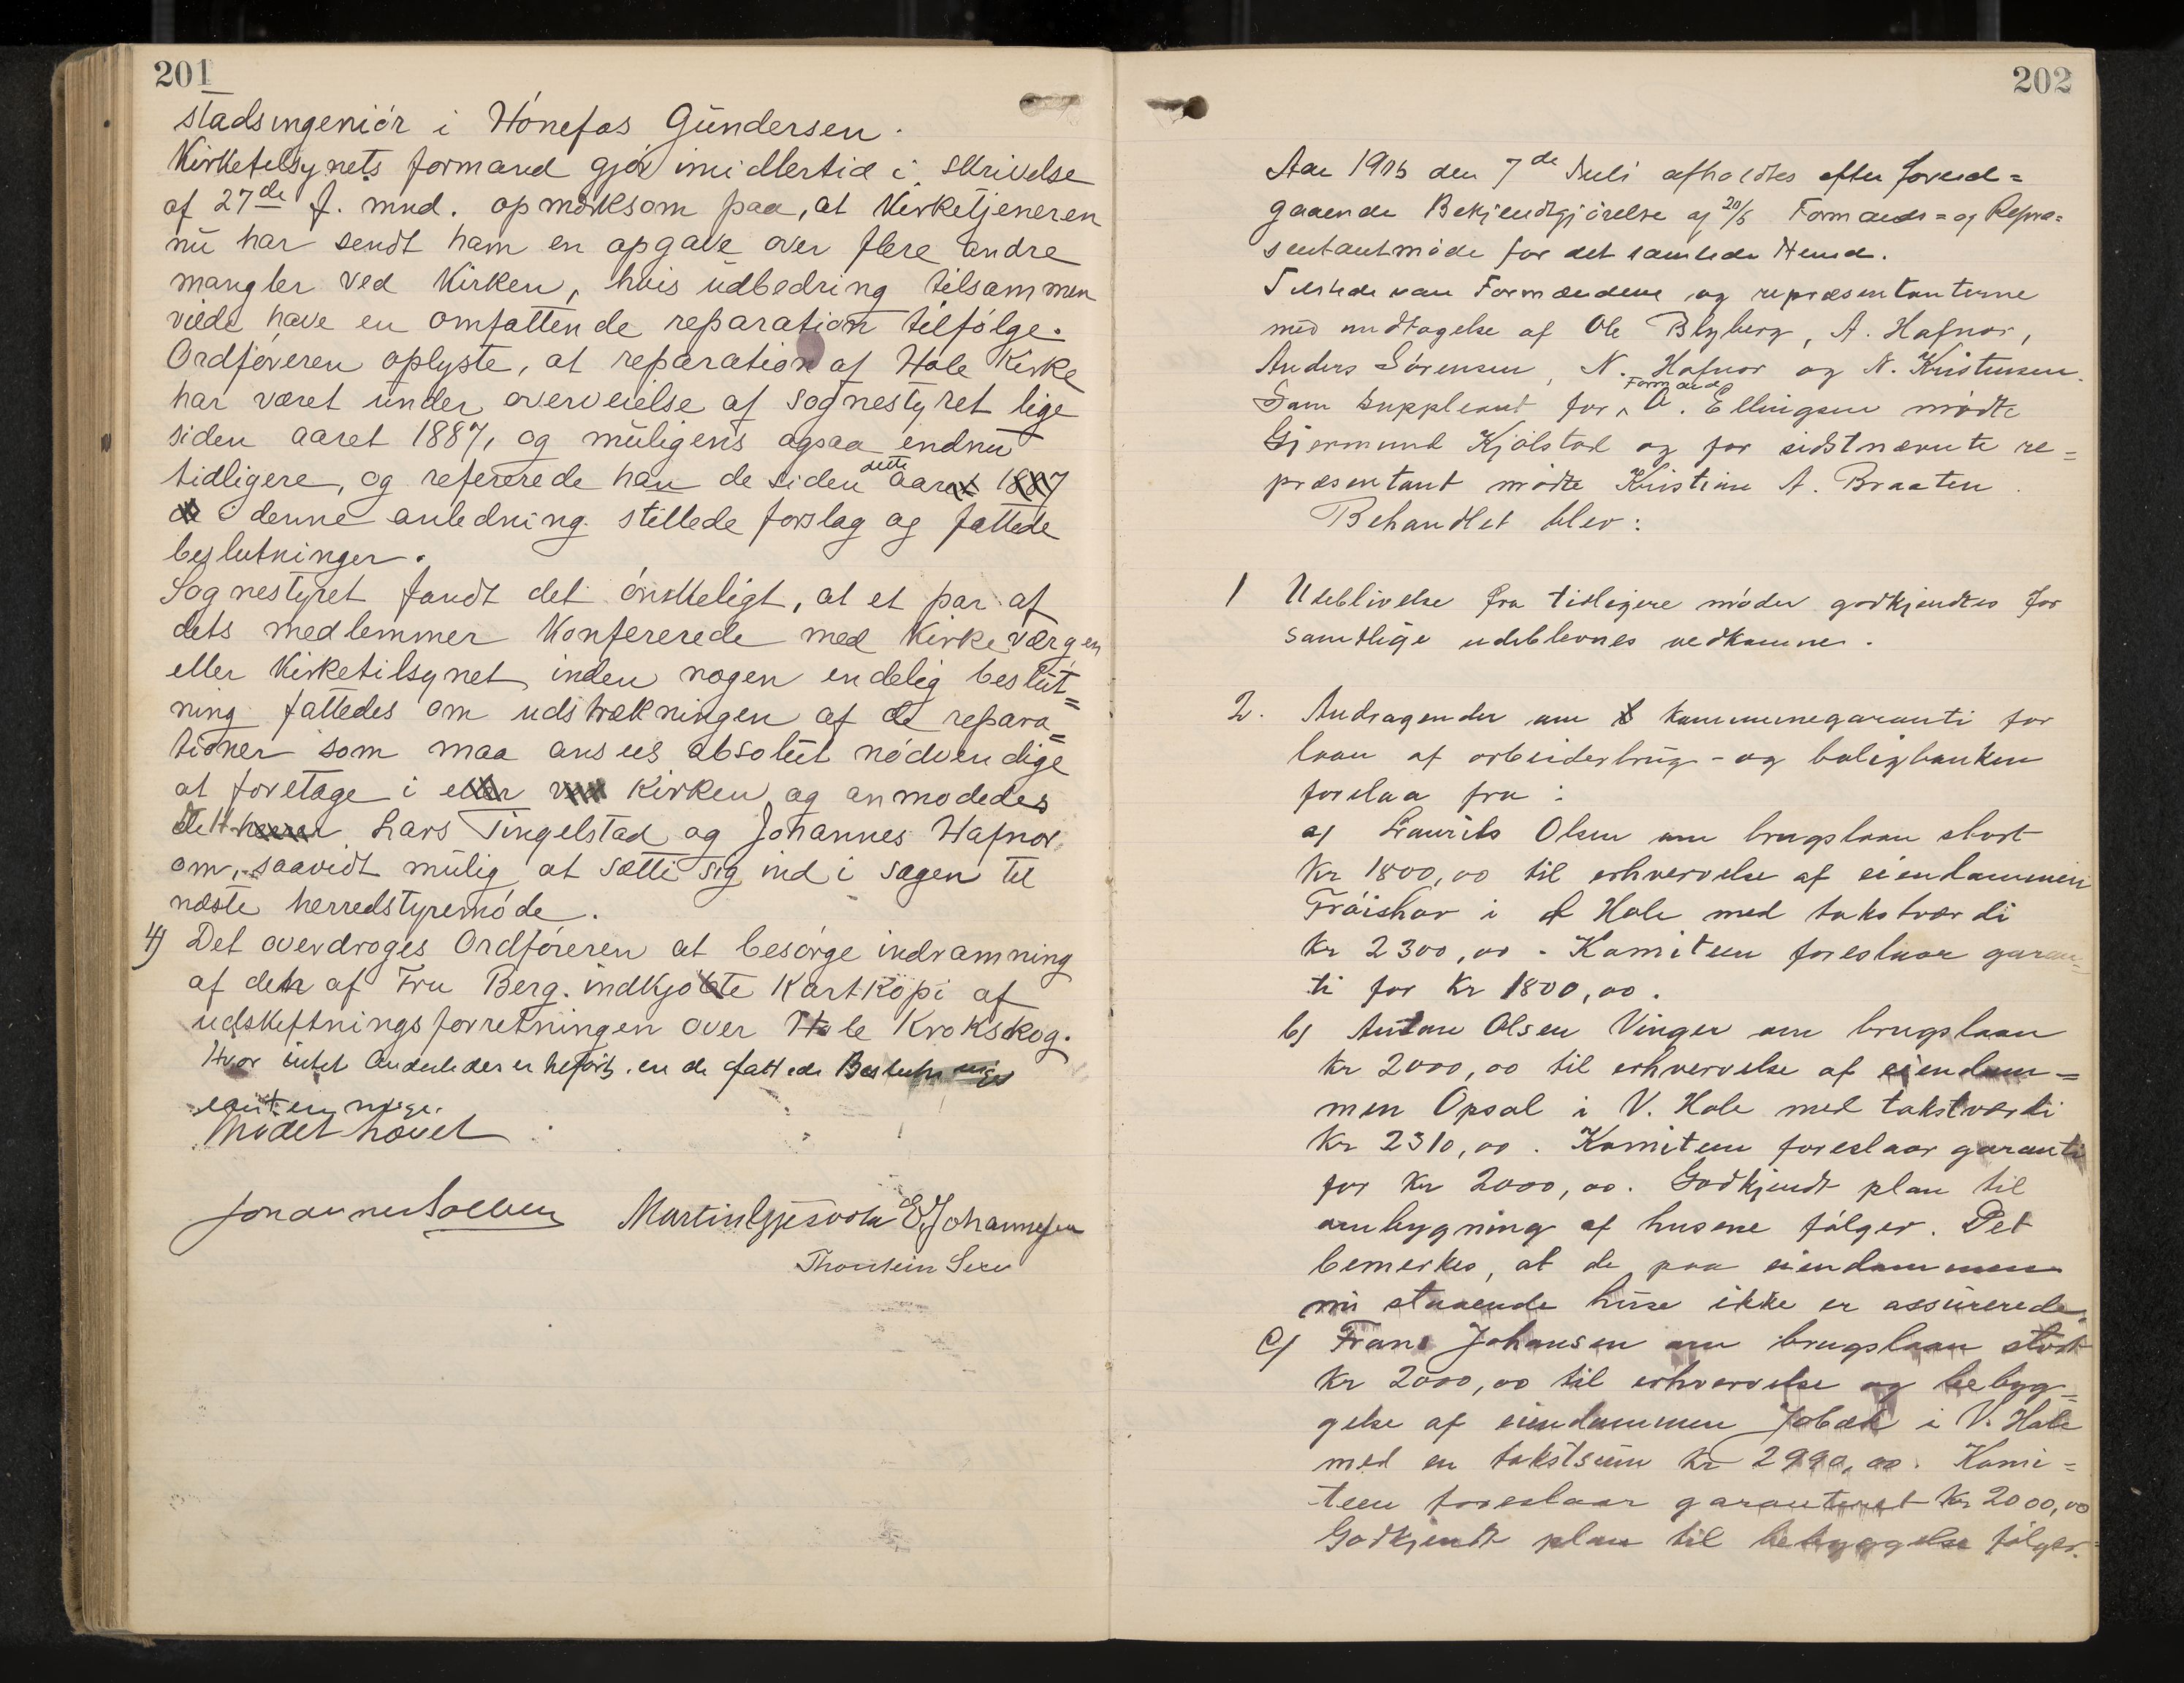 201
stadsingeniör i Hönefos Gundersen.
Kirketilsynets formand gjör imidlertid i skrivelse
af 27de f. mnd. opmærksom paa, at Kirketjeneren
nu har sendt ham en opgave over flere andre
mangler ved Kirken, hvis udbedring tilsammen
vilde have en omfattende reparation tilfölge.
Ordföreren oplyste, at reparation af Hole Kirke
har været under overveielse af sognestyret lige
siden aaret 1887, og muligens ogsaa endnu
tidligere, og refererede han de siden dette aaret 1887
de i denne anledning stillede forslag og fattede
beslutninger.
Sognestyret fandt det önskeligt, at et par af
dets medlemmer Konfererede med Kirkeværgen
eller Kirketilsynet inden nogen endelig beslut=
ning fattedes om udstrækningen af de repara=
tioner som maa ansees absolut nödvendige
at foretage i eller ved Kirken og anmodedes
d'Hr herrer Lars Tingelstad og Johannes Hafnor
om, saavidt mulig at sætte sig ind i sagen til
næste herredstyremöde.
4) Det overdroges Ordföreren at besörge indramning
af den af Fru Berg. indkjöbte Kartkopi af
udskiftningsforretningen over Hole Krokskog.
Hvor intet Anderledes er tilfört, er de fattede Beslutninger
enstemmige.
Mödet hævet
Johannes Solberg Martin Gjesvold E. Johannesen
Thorstein Sexe
202
Aar 1905 den 7de Juli afholdtes efter forud=
gaaende Bekjendtgjörelse af 20/6 Formands= og Repræ=
sentantmöde for det samlede Herred.
Tilstede var Formændene og repræsentanterne
med undtagelse af Ole Blyberg, A. Hafnor,
Anders Sörensen, N. Hafnor og N. Kristensen.
Som Suppleant for Formand O. Ellingsen mödte
Gjermund Kjölstad og for sidstnævnte re=
præsentant mödte Kristian A. Braaten.
Behandlet blev:
1 Udeblivelse fra tidligere möder godkjendtes for
samtlige udeblevnes vedkomne.
2. Andragender om kommunegaranti for
laan af arbeiderbrug- og boligbanken
forelaa fra:
a) Laurits Olsen om brugslaan stort
Kr 1800,00 til erhvervelse af eiendommen
Fröishov i Hole med takstværdi
Kr 2300,00. Komiteen foreslaar garan=
ti for Kr 1800,00.
b) Anton Olsen Vinger om brugslaan
Kr 2000,00 til erhvervelse af eiendom=
men Opsal i V. Hole med takstværdi
Kr 2310,00. Komiteen foreslaar garanti
for Kr 2000,00. Godkjendt plan til
ombygning af husene fölger. Det
bemerkes, at de paa eiendommen
nu staaende huse ikke er assurerede.
c) Frans Johansen om brugslaan stort
Kr 2000,00 til erhvervelse og bebyg=
gelse af eiendommen i V. Hole
med en takstsum Kr 2990,00. Komi=
teen foreslaar garanteret Kr 2000,00
Godkjendt plan til bebyggelse fölger.